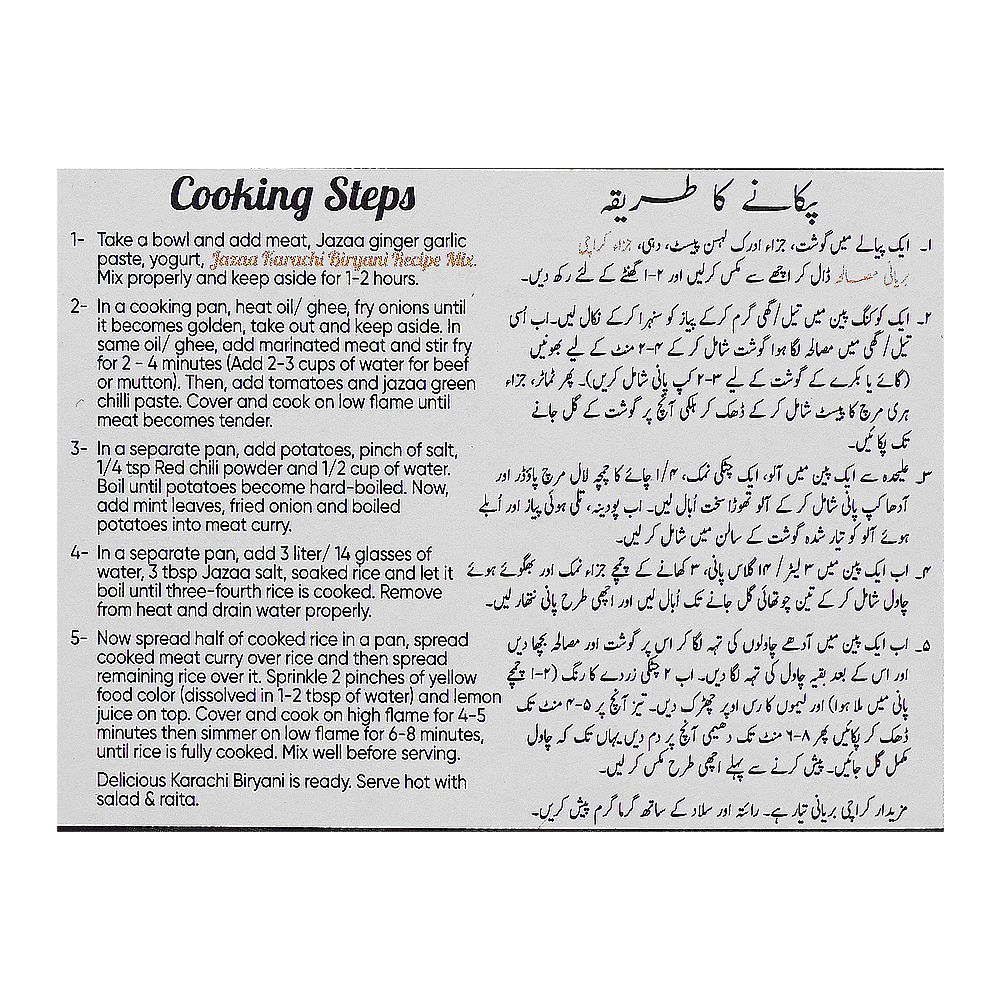 Cooking Steps
1- Take a bowl and add meat, Jazaa ginger garlic
paste, yogurt, Jazaa Karachi Biryani Recipe Mix.
Mix properly and keep aside for 1-2 hours.
2- In a cooking pan, heat oil/ ghee, fry onions until
it becomes golden, take out and keep aside. In
same oil/ ghee, add marinated meat and stir fry
for 2 - 4 minutes (Add 2-3 cups of water for beef
or mutton). Then, add tomatoes and jazaa green
chilli paste. Cover and cook on low flame until
meat becomes tender.
3- In a separate pan, add potatoes, pinch of salt,
1/4 tsp Red chili powder and 1/2 cup of water.
Boil until potatoes become hard-boiled. Now,
add mint leaves, fried onion and boiled
potatoes into meat curry.
4- In a separate pan, add 3 liter/ 14 glasses of
water, 3 tbsp Jazaa salt, soaked rice and let it
boil until three-fourth rice is cooked. Remove
from heat and drain water properly.
5- Now spread half of cooked rice in a pan, spread
cooked meat curry over rice and then spread
remaining rice over it. Sprinkle 2 pinches of yellow
food color (dissolved in 1-2 tbsp of water) and lemon
juice on top. Cover and cook on high flame for 4-5
minutes then simmer on low flame for 6-8 minutes,
until rice is fully cooked. Mix well before serving.
Delicious Karachi Biryani is ready. Serve hot with
salad & raita.
پکانے کا طریقہ
۱۔ ایک پیالے میں گوشت، جزاء ادرک لہسن پیسٹ، دہی، جزاء کراچی
بریانی مصالحہ ڈال کر اچھے سے مکس کرلیں اور ۲-۱ گھنٹے کے لئے رکھ دیں۔
۲۔ ایک کوکنگ پین میں تیل/گھی گرم کرکے پیاز کو سنہرا کرکے نکال لیں۔ اب اُسی
تیل/ گھی میں مصالحہ لگا ہوا گوشت شامل کر کے ۴-۲ منٹ کے لیے بھونیں
(گائے یا بکرے کے گوشت کے لیے ۳-۲ کپ پانی شامل کریں)۔ پھر ٹماٹر، جزاء
ہری مرچ کا پیسٹ شامل کر کے ڈھک کر ہلکی آنچ پر گوشت کے گل جانے
تک پکائیں۔
۳۔ علیحدہ سے ایک پین میں آلو، ایک چٹکی نمک، ۱/۴ چائے کا چمچہ لال مرچ پاؤڈر اور
آدھا کپ پانی شامل کر کے آلو تھوڑا سخت اُبال لیں۔ اب پودینہ، تلی ہوئی پیاز اور اُبلے
ہوئے آلو کو تیار شدہ گوشت کے سالن میں شامل کر لیں۔
۴۔ اب ایک پین میں ۳ لیٹر / ۱۴ گلاس پانی، ۳ کھانے کے چمچے جزاء نمک اور بھگوئے ہوئے
چاول شامل کر کے تین چوتھائی گل جانے تک اُبال لیں اور اچھی طرح پانی نتھار لیں۔
۵۔ اب ایک پین میں آدھے چاولوں کی تہہ لگا کر اس پر گوشت اور مصالحہ بچھا دیں
اور اس کے بعد بقیہ چاول کی تہہ لگا دیں۔ اب ۲ چٹکی زردے کا رنگ (۲-۱ چمچے
پانی میں ملا ہوا) اور لیموں کا رس اوپر چھڑک دیں۔ تیز آنچ پر ۵-۴ منٹ تک
ڈھک کر پکائیں پھر ۸-۶ منٹ تک دھیمی آنچ پر دم دیں یہاں تک کہ چاول
مکمل گل جائیں۔ پیش کرنے سے پہلے اچھی طرح مکس کر لیں۔
مزیدار کراچی بریانی تیار ہے۔ رائتہ اور سلاد کے ساتھ گرما گرم پیش کریں۔